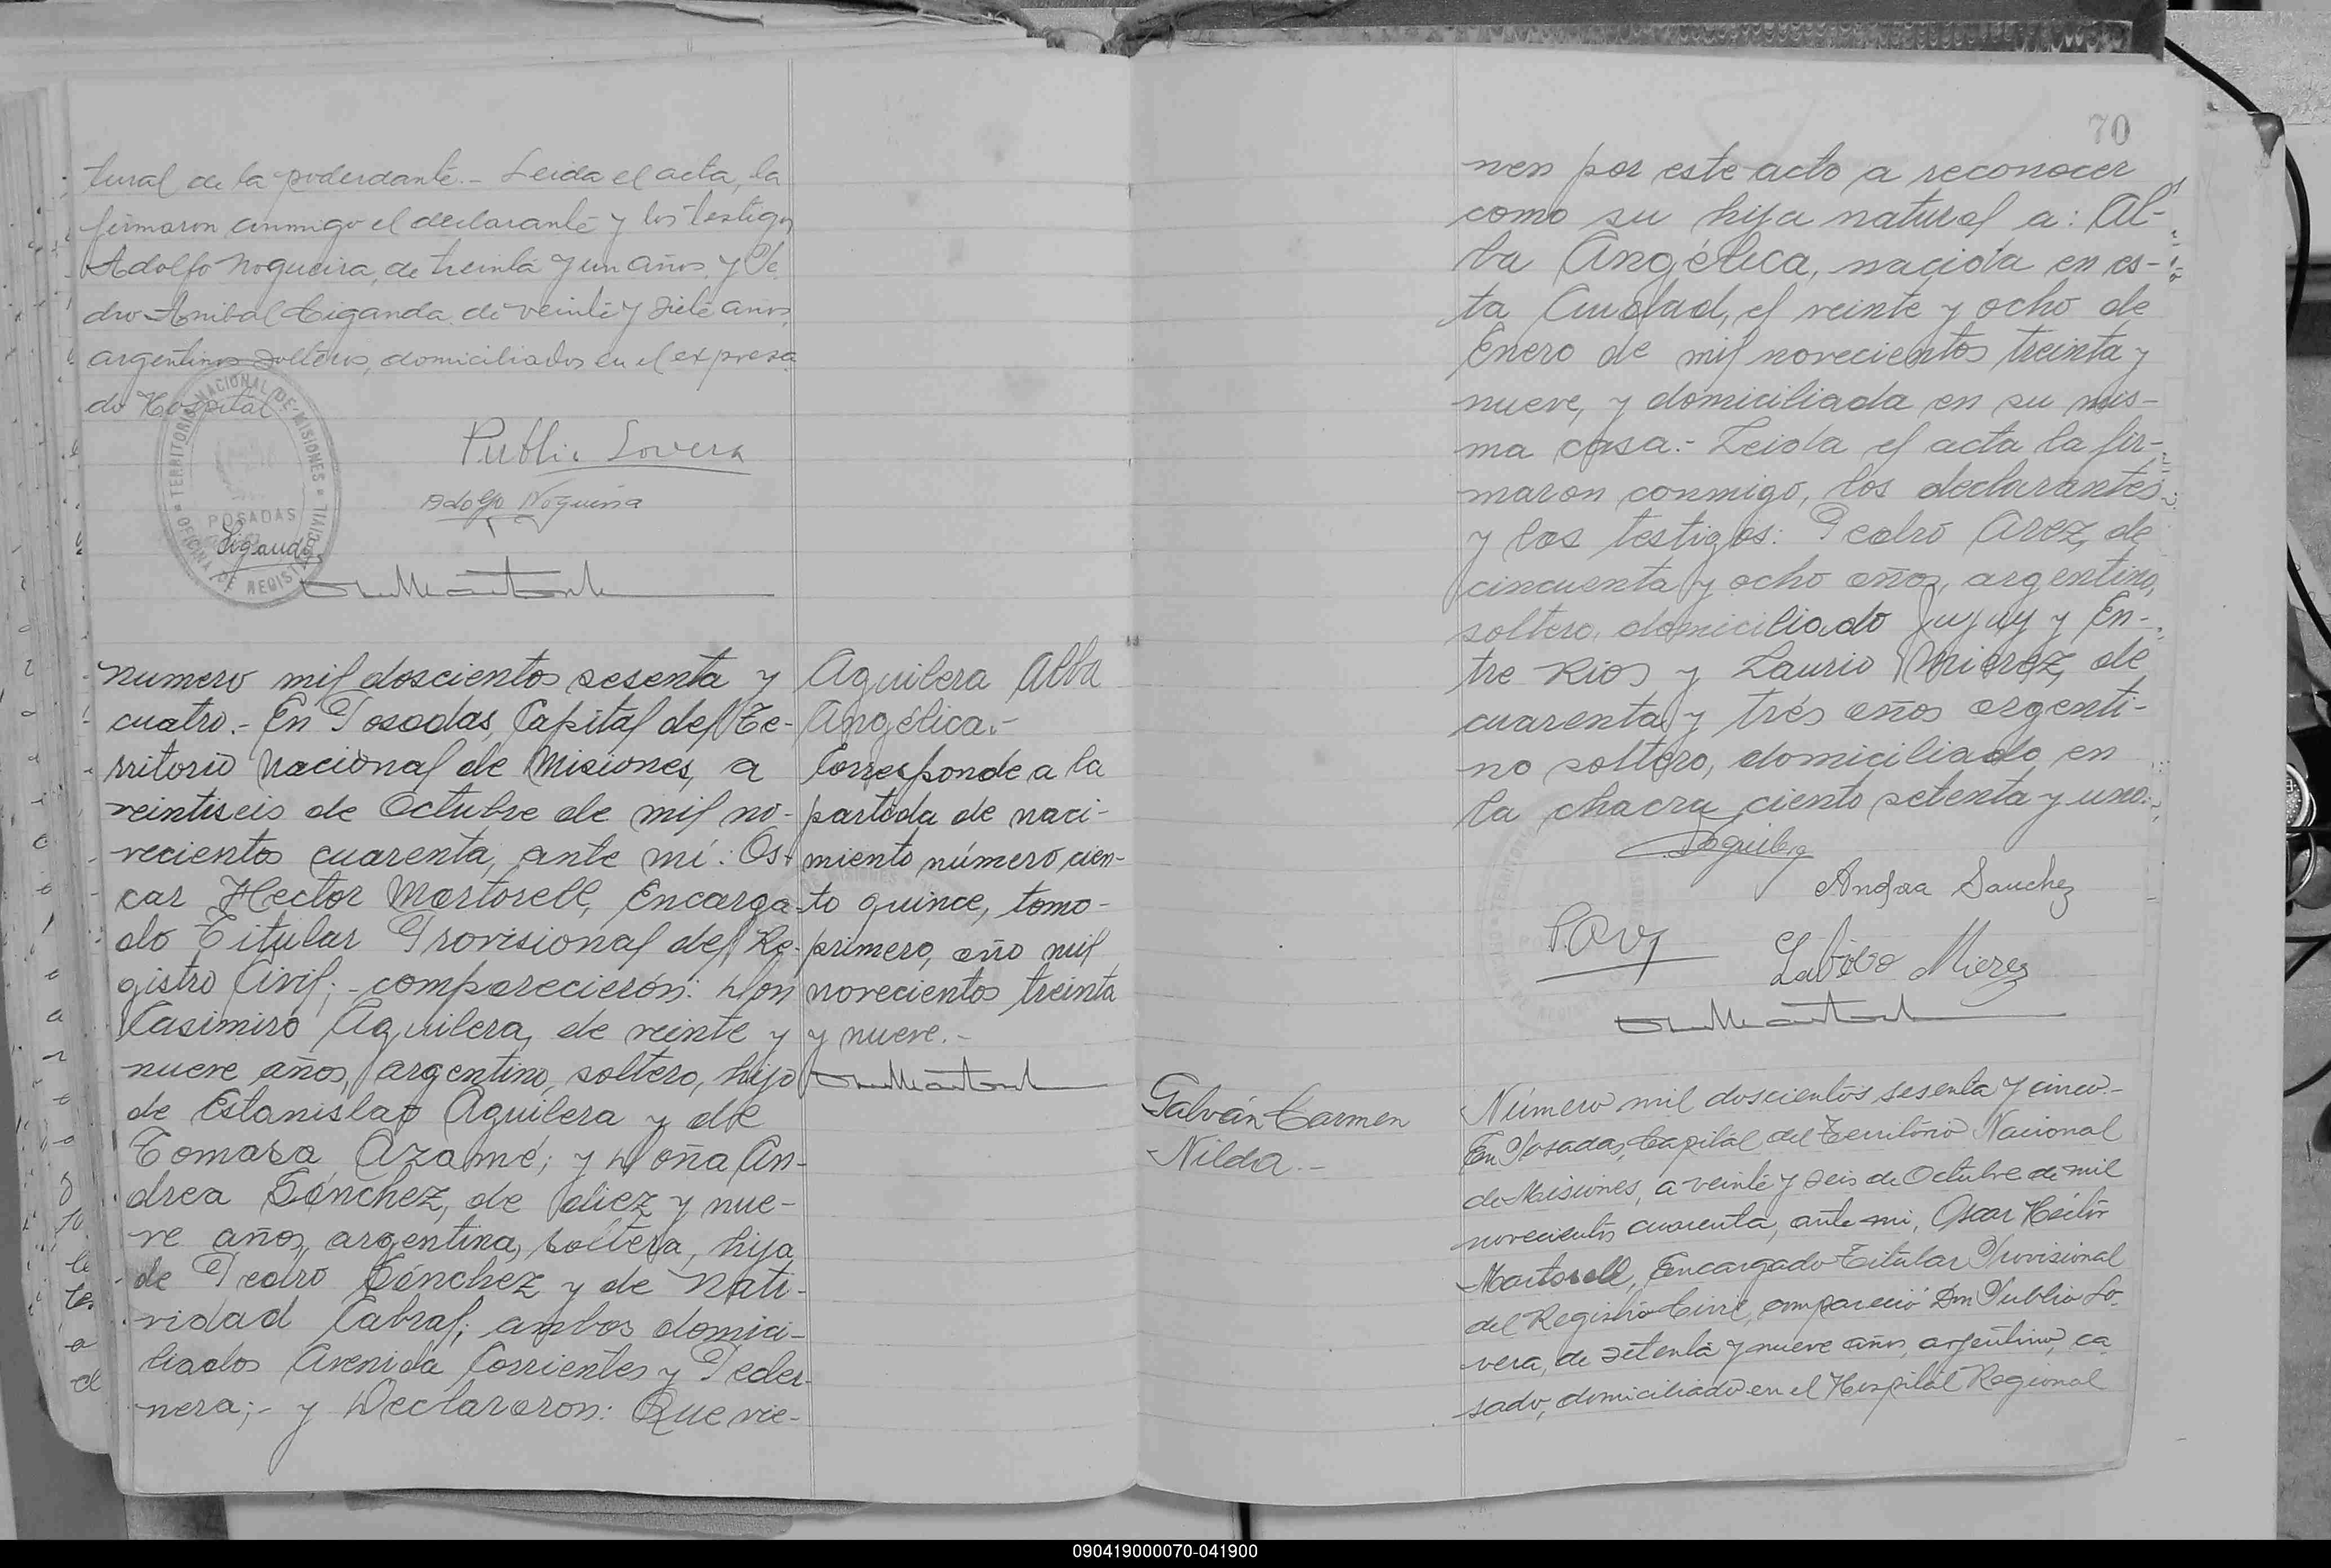 tural de la poderdante.- Leida el acta, la
firmaron conmigo el declarante y los testigos
Adolfo Nogueira, de treinta y un años, y Pe
dro Anibal Ciganda, de veinte y siete años,
argentinos solteros, domiciliados en el expresa
do Hospital
TERRITORIO NACIONAL DE MISIONES
POSADAS
OFICINA DE REGISTRO CIVIL
Publio Lovera
Adolfo Nogueira
numero mil doscientos sesenta y
cuatro.- En Posadas, Capital del Te-
rritorio Nacional de Misiones, a
veintiseis de Octubre de mil no-
vecientos cuarenta, ante mí: Os-
car Hector Martorell, Encarga-
do Titular Provisional del Re-
gistro Civil;- comparecierón: Don
Casimiro Aguilera, de veinte y
nueve años, argentino, soltero, hijo
de Estanislao Aguilera y de
Tomasa Azamé; y Doña An-
drea Sánchez, de diez y nue-
ve años, argentina, soltera, hija
de Pedro Sánchez y de Nati-
vidad Cabral; ambos domici-
liados Avenida Corrientes y Peder-
nera;- y Declararon: Que vie-
Aguilera Alba
Angélica.-
Corresponde a la
partida de naci-
miento número cien-
to quince, tomo-
primero, año mil
novecientos treinta
y nueve.-
70
nen por este acto a reconocer
como su hija natural a: Al-
ba Angélica, nacida en es-
ta Ciudad, el veinte y ocho de
Enero de mil novecientos treinta y
nueve, y domiciliada en su mis-
ma casa.- Leida el acta la fir-
maron conmigo, los declarantes
y los testigos: Pedro Arez, de
cincuenta y ocho años, argentino,
soltero, domiciliado Jujuy y En-
tre Rios y Laurio Mierez, de
cuarenta y trés años argenti-
no soltero, domiciliado en
la chacra ciento setenta y uno.-
Aguilera
Andrea Sanchez
Mierez
Galván Carmen
Nilda.-
Número mil doscientos sesenta y cinco.-
En Posadas, Capital del Territorio Nacional
de Misiones, a veinte y seis de Octubre de mil
novecientos cuarenta, ante mi, Oscar Héctor
Martorell, Encargado Titular Provisional
del Registro Civil, compareció Don Publio Lo-
vera, de setenta y nueve años, argentino, ca
sado, domiciliado en el Hospital Regional
090419000070-041900